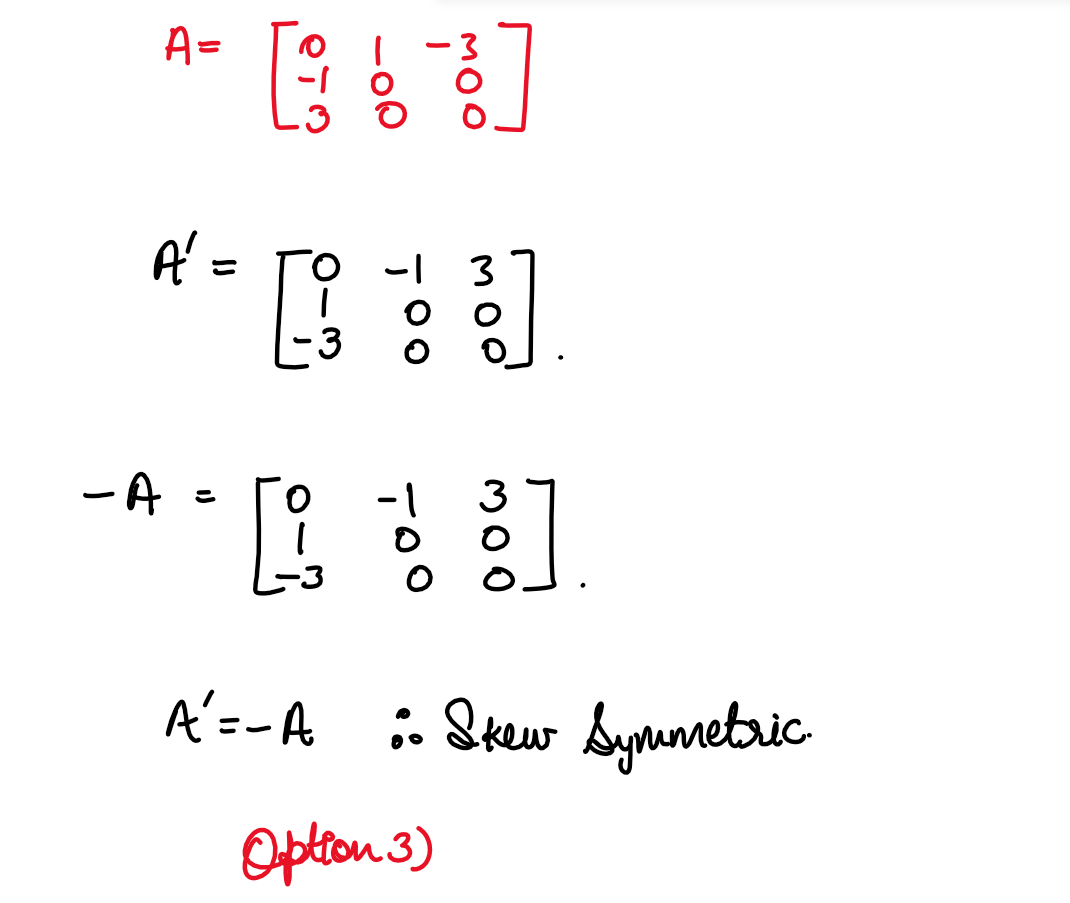 A= [0 1 -3
-1 0 0
3 0 0]
A' = [0 -1 3
1 0 0
-3 0 0].
-A = [0 -1 3
1 0 0
-3 0 0].
A'=-A ∴ Skew Symmetric.
Option 3)